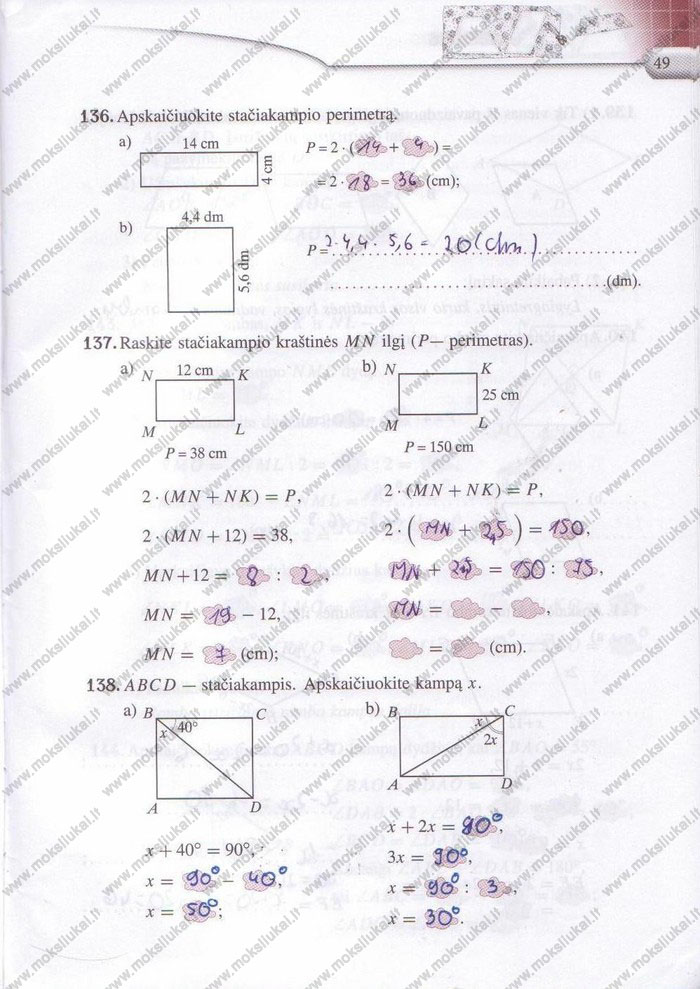 49
136. Apskaičiuokite stačiakampio perimetrą.
a) 14 cm
4 cm
P = 2 · (14 + 4) =
= 2 · 18 = 36 (cm);
b) 4,4 dm
5,6 dm
P = 2· 4,4 · 5,6 = 20 (dm)
(dm).
137. Raskite stačiakampio kraštinės MN ilgį (P— perimetras).
a) N 12 cm K
M L
P = 38 cm
2 · (MN + NK) = P,
2 · (MN + 12) = 38,
MN + 12 = 8 : 2,
MN = 19 − 12,
MN = 7 (cm);
b) N K
25 cm
M L
P = 150 cm
2 · (MN + NK) = P,
2 · (MN + 25) = 150,
MN + 25 = 150 : 75,
MN = −
= (cm).
138. ABCD — stačiakampis. Apskaičiuokite kampą x.
a) B C
x 40°
A D
x + 40° = 90°,
x = 90° − 40°,
x = 50°;
b) B C
x
2x
A D
x + 2x = 90°,
3x = 90°,
x = 90° : 3,
x = 30°.
www.moksliukai.lt